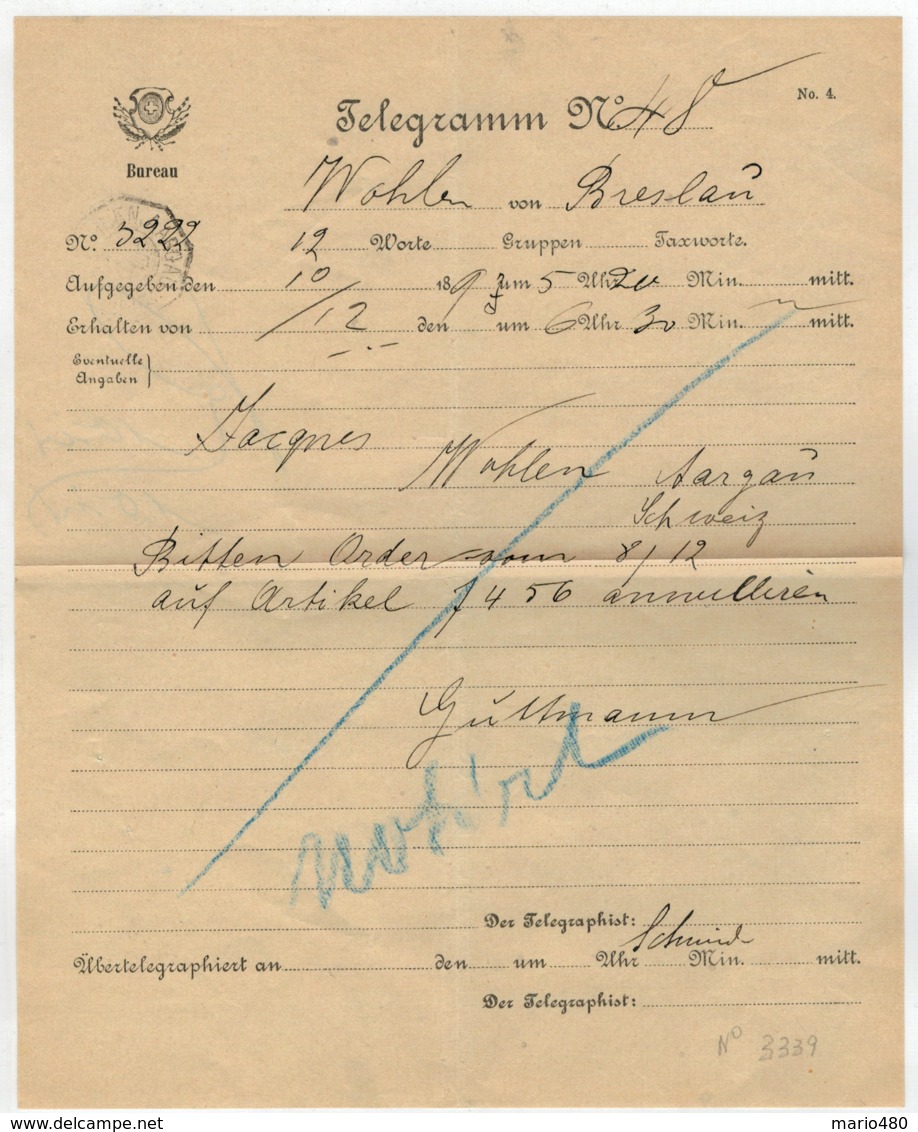 No. 4.
Telegramm No 48
Bureau
Wohlen von Breslau
No. 5222 12 Worte Gruppen Taxworte.
Aufgegeben den 10 1897 um 5 Uhr 20 Min. mitt.
Erhalten von /12 den um 6 Uhr 30 Min. mitt.
Eventuelle
Angaben
Jacques
Wohlen Aargau
Schweiz
Bitten Order vom 8/12
auf Artikel 7456 annullieren
Guttmann
notirt
Der Telegraphist:
Schmid
Übertelegraphiert an den um Uhr Min. mitt.
Der Telegraphist:
No 3339
mario480